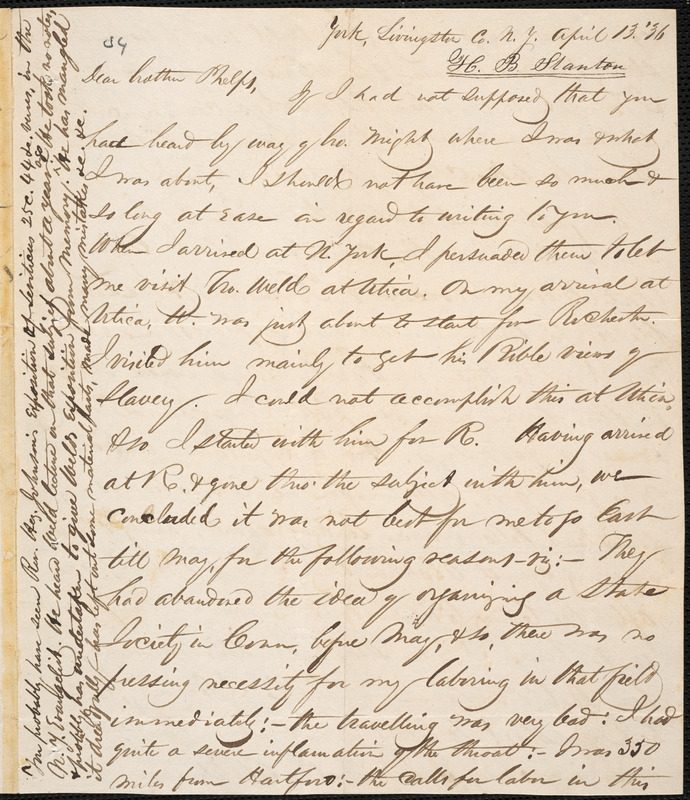 54
York, Livingston Co. N. Y. April 13. '36
H. B. Stanton
Dear brother Phelps,
If I had not supposed that you
had heard by way of bro. Wright where I was & what
I was about, I should not have been so much &
so long at ease in regard to writing to you.
When I arrived at N. York, I persuaded them to let
me visit bro. Weld at Utica. On my arrival at
Utica, W. was just about to start for Rochester.
I visited him mainly to get his Bible views of
slavery. I could not accomplish this at Utica
& so I started with him for R. Having arrived
at R. & gone thro' the subject with him, we
concluded it was not best for me to go East
till May, for the following reasons—viz:— They
had abandoned the idea of organizing a State
Society in Conn, before May, & so, there was no
pressing necessity for my laboring in that field
immediately:— the travelling was very bad: I had
quite a severe inflamation of the throat:— I was 350
miles from Hartford:— the calls for labor in this
You probably have seen Rev. Mr. Johnson's exposition of Leviticus 25c. 44 &c. vers, in the
N. Y. Evangelist. He heard Weld lecture on that subject about a year ago. He took no notes,
& probably has undertaken to give Weld's exposition from memory. He has mangled
it dreadfully, has left out some material parts, made many mistakes &c. &c.